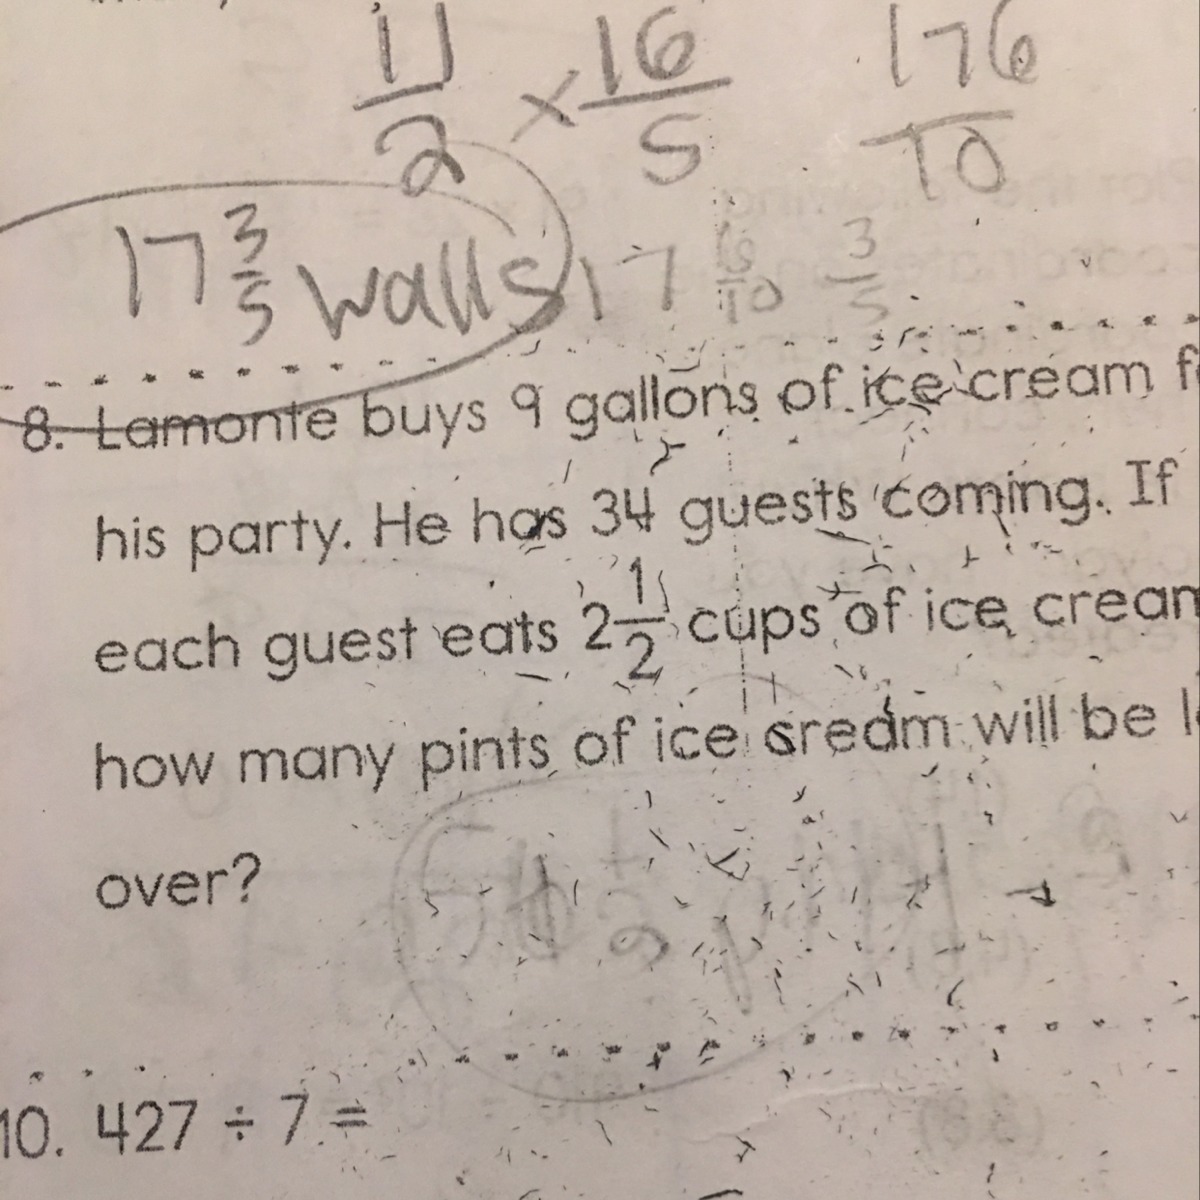 11/2 × 16/5 176/10
17 3/5 walls 17 6/10 3/5
8. Lamonte buys 9 gallons of ice cream f
his party. He has 34 guests coming. If
each guest eats 2 1/2 cups of ice cream
how many pints of ice cream will be l
over?
10. 427 ÷ 7 =